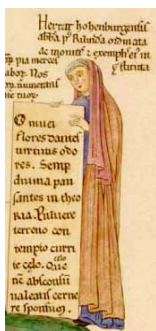 Herrat hohenburgensis
abba p' Rilinda ordinata
ac monitis & exemplis ei' in
stituta
pia merces
abor. Nos
O nivei
flores dantes
virtutis odo
res. Semp
divina pau
santes in theo
ria. Pulvere
terreno con
tempto curri
te celo. Quo
nc absconsū
valeatis cerne
re sponsum.